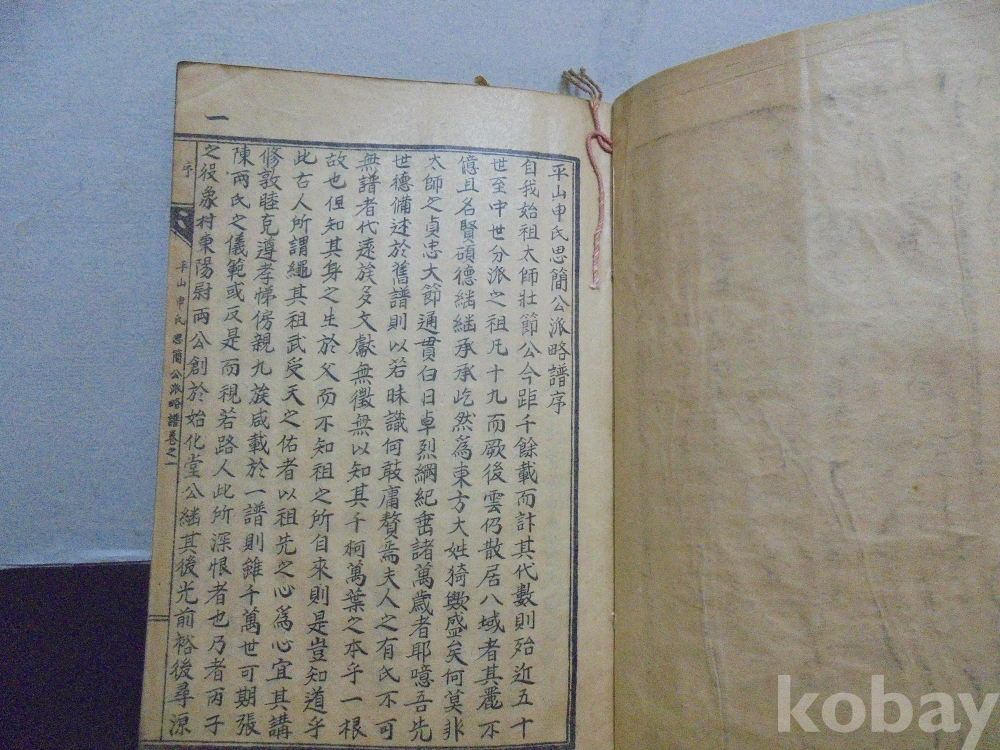 平山申氏思簡公派略譜序
自我始祖太師壯節公今距千餘載而計其代數則殆近五十
世至中世分派之祖凡十九而厥後雲仍散居八域者其麗不
億且名賢碩德繼繼承承屹然爲東方大姓猗歟盛矣何莫非
太師之貞忠大節通貫白日卓烈綱紀垂諸萬歲者耶噫吾先
世德備述於舊譜則以若昧識何敢庸贅焉夫人之有氏不可
無譜者代遠族多文獻無徵無以知其千柯萬葉之本乎一根
故也但知其身之生於父而不知祖之所自來則是豈知道乎
此古人所謂繩其祖武受天之佑者以祖先之心爲心宜其講
修敦睦克遵孝悌傍親九族咸載於一譜則雖千萬世可期張
陳兩氏之儀範或反是而視若路人此所深恨者也乃者丙子
之役象村東陽尉兩公創於始化堂公繼其後光前裕後尋源
一
序
平山申氏 思簡公派略譜卷之一
kobay